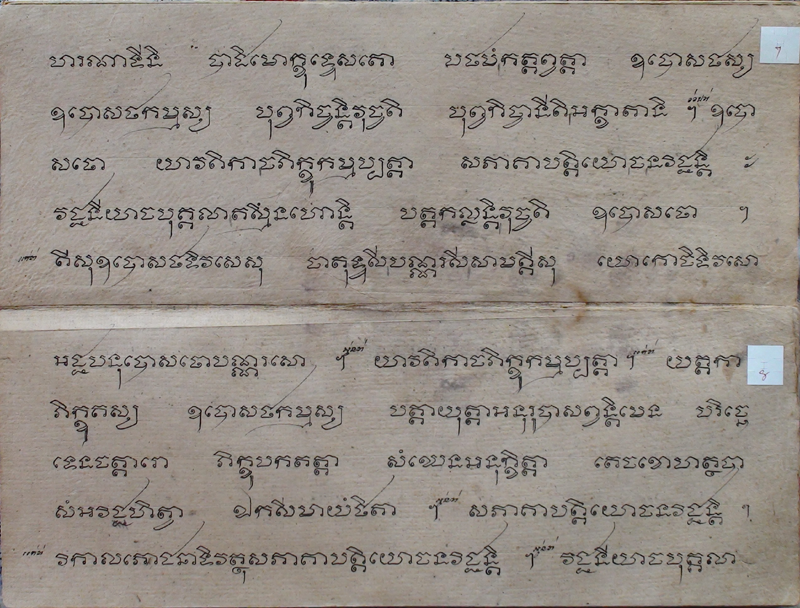 ហរណាទីនិ បាដិមោក្ខុទ្ទេសតោ បឋមំកត្តព្វត្តា ឧបោសថស្ស
ឧបោសថកម្មស្ស បុព្វកិច្ចន្តិវុច្ចតិ បុព្វកិច្ចានីតិអក្ខាតានិ ។ ឧបោ
សថោ យាវតិកាចភិក្ខូកម្មប្បត្តា សភាគាបត្តិយោចនវិជ្ជន្តិ
វជ្ជនីយាចបុគ្គលាតស្មឹនហោន្តិ បត្តកល្លន្តិវុច្ចតិ ឧបោសថោ ។
តីសុឧបោសថទិវសេសុ ចាតុទ្ទសីបណ្ណរសីសាមគ្គីសុ យោកោចិទិវសោ
អជ្ជបនុបោសថោបណ្ណរសោ ។ យាវតិកាចភិក្ខូកម្មប្បត្តា ។ យត្តកា
ភិក្ខូតស្ស ឧបោសថកម្មស្ស បត្តាយុត្តាអនុរូបាសព្វន្តិមេន បរិច្ឆេ
ទេនចត្តារោ ភិក្ខូបកតត្តា សំឃេនអនុក្ខិត្តា តេចខោហត្ថបា
សំអវិជ្ជហិត្វា ឯកសីមាយំឋិតា ។ សភាគាបត្តិយោចនវិជ្ជន្តិ ។
វិកាលភោជនាទិវត្ថុសភាគាបត្តិយោចនវិជ្ជន្តិ ។ វជ្ជនីយាចបុគ្គលា